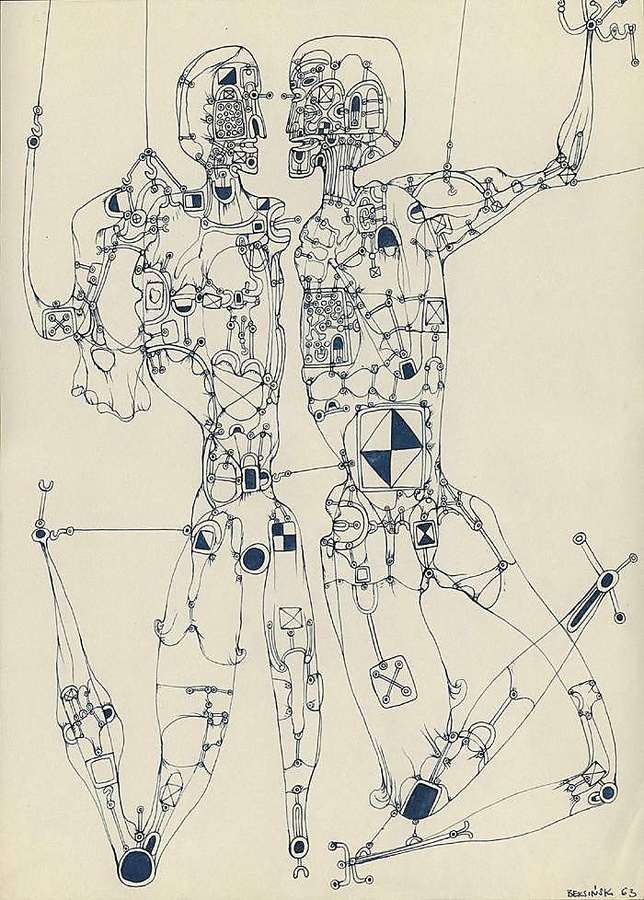 BEKSIŃSKI 63